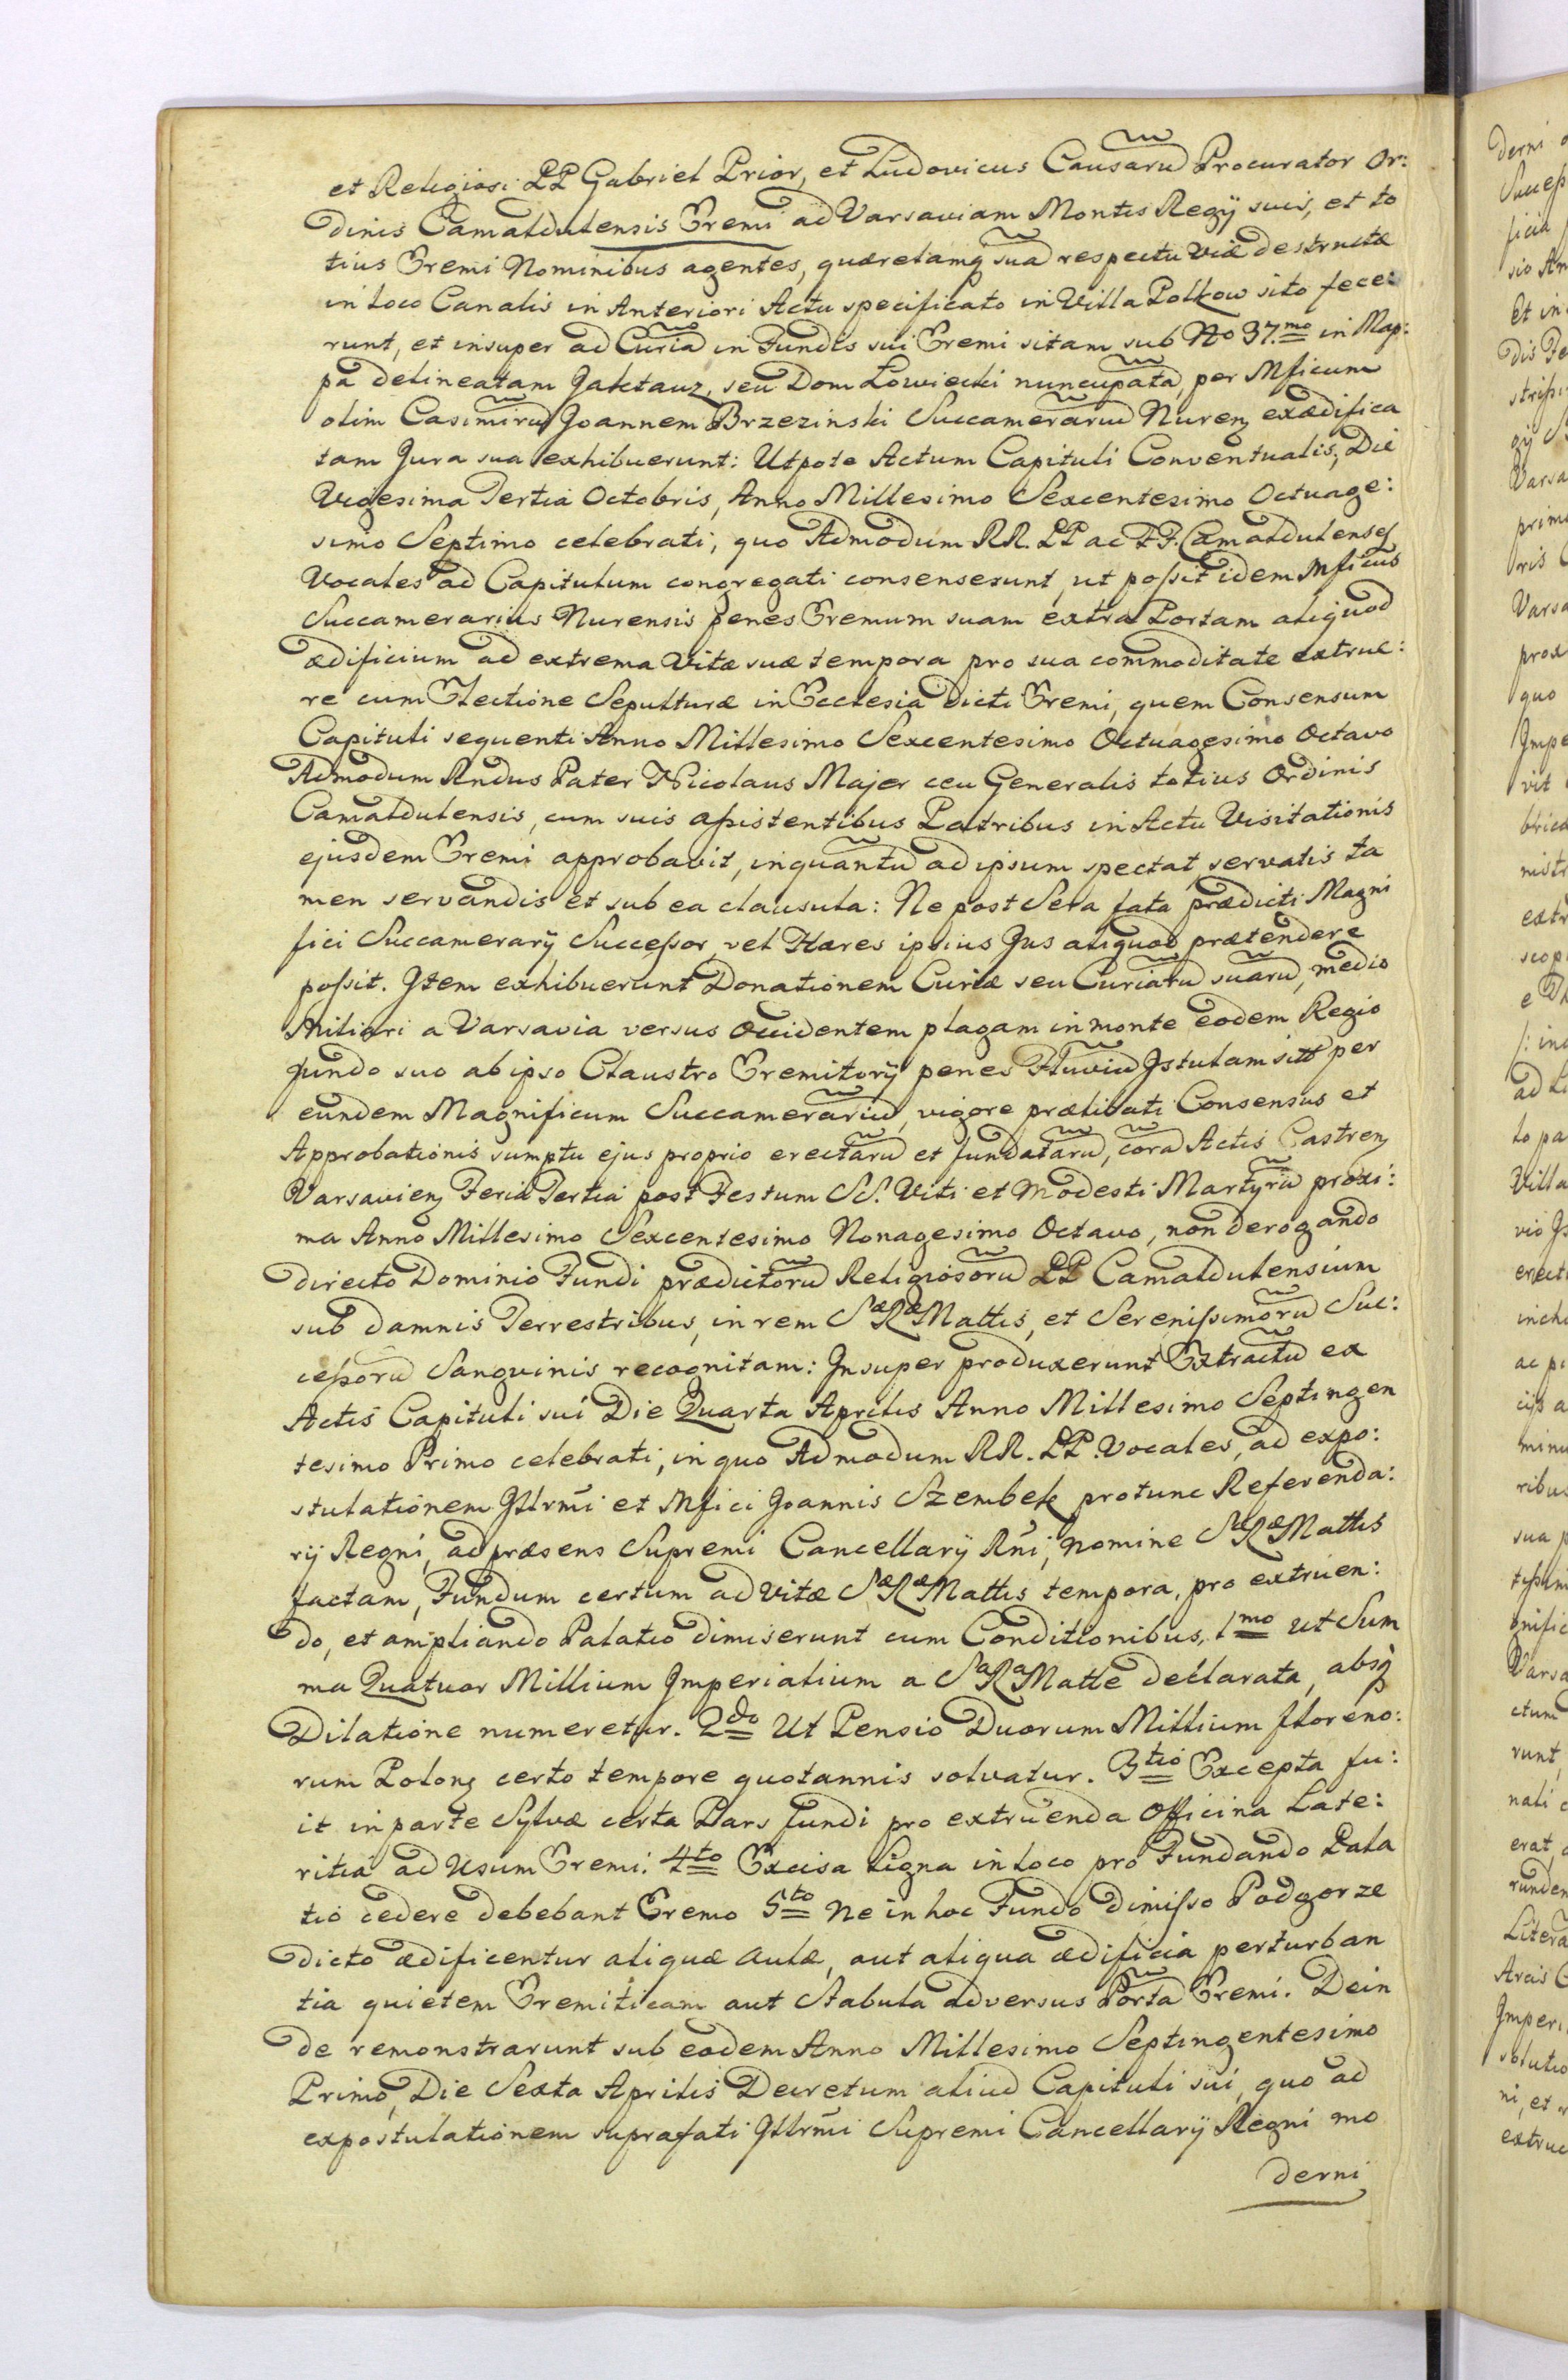 et Religiosi PP Gabriel Prior, et Ludovicus Causarũ Procurator Or:
dinis Camaldulensis Eremi ad Varsaviam Montis Regÿ suis, et to
tius Eremi Nominibus agentes, quærelamq̨ suã respectu viæ destructæ
in loco Canalis in Anteriori Actu specificato in Villa Polkow sito fece:
runt, et insuper ad Curiã in Fundis sui Eremi sitam sub No 37.mo in Map:
pa delineatam Jaktauz, seu Dom Łowiecki nuncupatã, per Mficum
olim Casimirũ Joannem Brzezinski Succamerariũ Nureñ exædifica
tam Jura sua exhibuerunt: Utpote Actum Capituli Conventualis, Die
Vigesima Tertia Octobris, Anno Millesimo Sexcentesimo Octuage:
simo Septimo celebrati, quo Admodum RR. PP ac FF. Camaldulenses
Vocales ad Capitulum congregati consenserunt, ut possit idem Mficus
Succamerarius Nurensis penes Eremum suam extra Portam aliquod
ædificium ad extrema Vitæ suæ tempora pro sua commoditate extrue:
re cum Electione Sepulturæ in Ecclesia dicti Eremi, quem Consensum
Capituli sequenti Anno Millesimo Sexcentesimo Octuagesimo Octavo
Admodum Rndus Pater Nicolaus Major ceu Generalis totius Ordinis
Camaldulensis, cum suis assistentibus Patribus in Actu Visitationis
ejusdem Eremi approbavit, inquantũ ad ipsum spectat, servatis ta
men servandis et sub ea clausula: Ne post Sera fata prædicti Magni
fici Succamerarÿ Successor, vel Hæres ipsius Jus aliquod prætendere
possit. Item exhibuerunt Donationem Curiæ seu Curiarũ suarũ, medio
Miliari a Varsavia versus Occidentem plagam in monte eodem Regio
fundo suo ab ipso Claustro Eremitorÿ penes Fluviũ Istulam sitt per
eundem Magnificum Succamerariũ, vigore prælibati Consensus et
Approbationis sumptu ejus proprio erectarũ et fundatarũ, corã Actis Castreñ
Varsavieñ Feria Tertia post Festum SS. Viti et Modesti Martyrũ proxi:
ma Anno Millesimo Sexcentesimo Nonagesimo Octavo, non derogando
directo Dominio Fundi prædictorũ Religiosorũ PP Camaldulensium
sub damnis Terrestribus, in rem Sæ Ræ Mattis, et Serenissimorũ Suc:
cessorũ Sangvinis recognitam: Insuper produxerunt Extractũ ex
Actis Capituli sui Die Quarta Aprilis Anno Millesimo Septingen
tesimo Primo celebrati, in quo Admodum RR. PP. Vocales, ad expo:
stulationem Jllrmi et Mfici Joannis Szembek protunc Referenda:
rÿ Regni, ad præsens Supremi Cancellarÿ Rñi, nomine Sæ Ræ Mattis
factam, Fundum certum ad Vitæ Sæ Ræ Mattis tempora, pro extruen:
do, et ampliando Palatio dimiserunt cum Conditionibus, 1mo ut Sum
ma Quatuor Millium Imperialium a Sa Ra Matte declarata, absq̨
Dilatione numeretur. 2do Ut Pensio Duorum Millium floreno:
rum Poloñ certo tempore quotannis solvatur. 3tio Excepta fu:
it in parte Sylvæ certa Pars fundi pro extruenda Officina Late:
ritia ad Usum Eremi. 4to Excisa Ligna in loco pro Fundando Pala
tio cedere debebant Eremo 5to Ne in hoc Fundo dimisso Podgorze
dicto ædificentur aliquæ Aulæ, aut aliqua ædificia perturban
tia quietem Eremiticam aut Stabula adversus Portã Eremi. Dein
de remonstrarunt sub eodem Anno Millesimo Septingentesimo
Primo, Die Sexta Aprilis Decretum aliud Capituli sui, quo ad
expostulationem suprafati Jllrmi Supremi Cancellarÿ Regni mo
derni